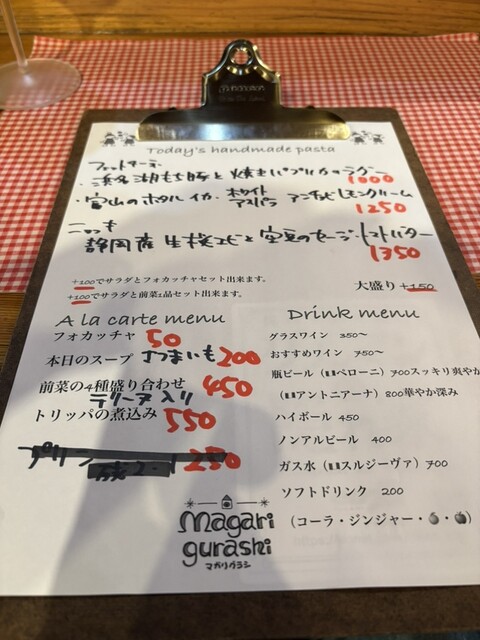 Today's handmade pasta
・浜名湖もち豚と焼きパプリカのラグー 1000
・富山のホタルイカ・ホワイトアスパラ アンチョビレモンクリーム
1250
ニョッキ
静岡産生桜エビと空豆のセージ・トマトバター
1350
+100でサラダとフォカッチャセット出来ます。
大盛り +150
+100でサラダと前菜1品セット出来ます。
A la carte menu
フォカッチャ 50
本日のスープ さつまいも 200
前菜の4種盛り合わせ 450
テリーヌ入り
トリッパの煮込み 550
プリン 250
Drink menu
グラスワイン 350〜
おすすめワイン 750〜
瓶ビール（🇮🇹ペローニ）700スッキリ爽やか
（🇮🇹アントニアーナ）800華やか深み
ハイボール 450
ノンアルビール 400
ガス水（🇮🇹スルジーヴァ）700
ソフトドリンク 200
（コーラ・ジンジャー・🍊・🍎）
Magari
gurashi
マガリグラシ